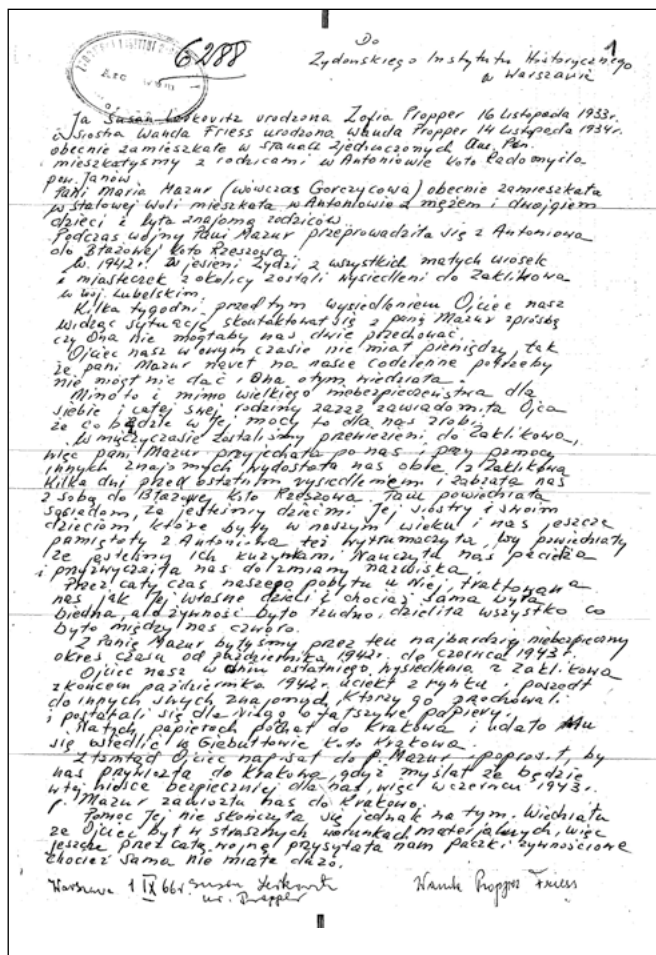 6288
1
Do
Żydowskiego Instytutu Historycznego
w Warszawie
Ja Susan Lerkovitz urodzona Zofia Propper 16 Listopada 1933r.
i siostra Wanda Friess urodzona Wanda Propper 14 Listopada 1934r.
obecnie zamieszkałe w Stanach Zjednoczonych Am. Płn.
mieszkałyśmy z rodzicami w Antoniowie koło Radomyśla
pow. Janów.
Pani Maria Mazur (wówczas Gorczycowa) obecnie zamieszkała
w Stalowej Woli mieszkała w Antoniowie z mężem i dwojgiem
dzieci i była znajomą rodziców.
Podczas wojny Pani Mazur przeprowadziła się z Antoniowa
do Błażowej koło Rzeszowa.
W 1942r. w jesieni Żydzi z wszystkich małych wiosek
i miasteczek z okolicy zostali wysiedleni do Zaklikowa
w woj. Lubelskim.
Kilka tygodni przed tym wysiedleniem Ojciec nasz
widząc sytuację skontaktował się z panią Mazur z prośbą
czy Ona nie mogłaby nas dwie przechować.
Ojciec nasz w owym czasie nie miał pieniędzy, tak
że pani Mazur nawet na nasze codzienne potrzeby
nie mógł nic dać i Ona o tym wiedziała.
Mimo to i mimo wielkiego niebezpieczeństwa dla
siebie i całej swej rodziny zaraz zawiadomiła Ojca
że co będzie w Jej mocy to dla nas zrobi.
W międzyczasie zostaliśmy przewiezieni do Zaklikowa,
więc pani Mazur przyjechała po nas i przy pomocy
innych znajomych wydostała nas obie z Zaklikowa
kilka dni przed ostatnim wysiedleniem i zabrała nas
z sobą do Błażowej koło Rzeszowa. Tam powiedziała
sąsiadom, że jesteśmy dziećmi Jej siostry i swoim
dzieciom, które były w naszym wieku i nas jeszcze
pamiętały z Antoniowa też wytłumaczyła, by powiedziały
że jesteśmy ich kuzynkami. Nauczyła nas pacierza
i przyzwyczaiła nas do zmiany nazwiska.
Przez cały czas naszego pobytu u Niej, traktowała
nas jak Jej własne dzieci i chociaż sama była
biedna, a o żywność było trudno, dzieliła wszystko co
było między nas czworo.
Z Panią Mazur byłyśmy przez ten najbardziej niebezpieczny
okres czasu od października 1942r. do czerwca 1943r.
Ojciec nasz w dniu ostatniego wysiedlenia z Zaklikowa
z końcem października 1942r. uciekł z rynku i poszedł
do innych swych znajomych, którzy go przechowali
i postarali się dla Niego o fałszywe papiery.
Na tych papierach pojechał do Krakowa i udało Mu
się osiedlić w Giebułtowie koło Krakowa.
Z tamtąd Ojciec napisał do p. Mazur i poprosił, by
nas przywiozła do Krakowa, gdyż myślał że będzie
w tej miejsce bezpieczniej dla nas, więc w czerwcu 1943r.
p. Mazur zawiozła nas do Krakowa.
Pomoc Jej nie skończyła się jednak na tym. Wiedziała
że Ojciec był w strasznych warunkach materialnych, więc
jeszcze przez całą wojnę przysyłała nam paczki żywnościowe
chociaż sama nie miała dużo.
Warszawa 1 IX 66r. Susan Lerkovitz Wanda Propper Friess
ur. Propper